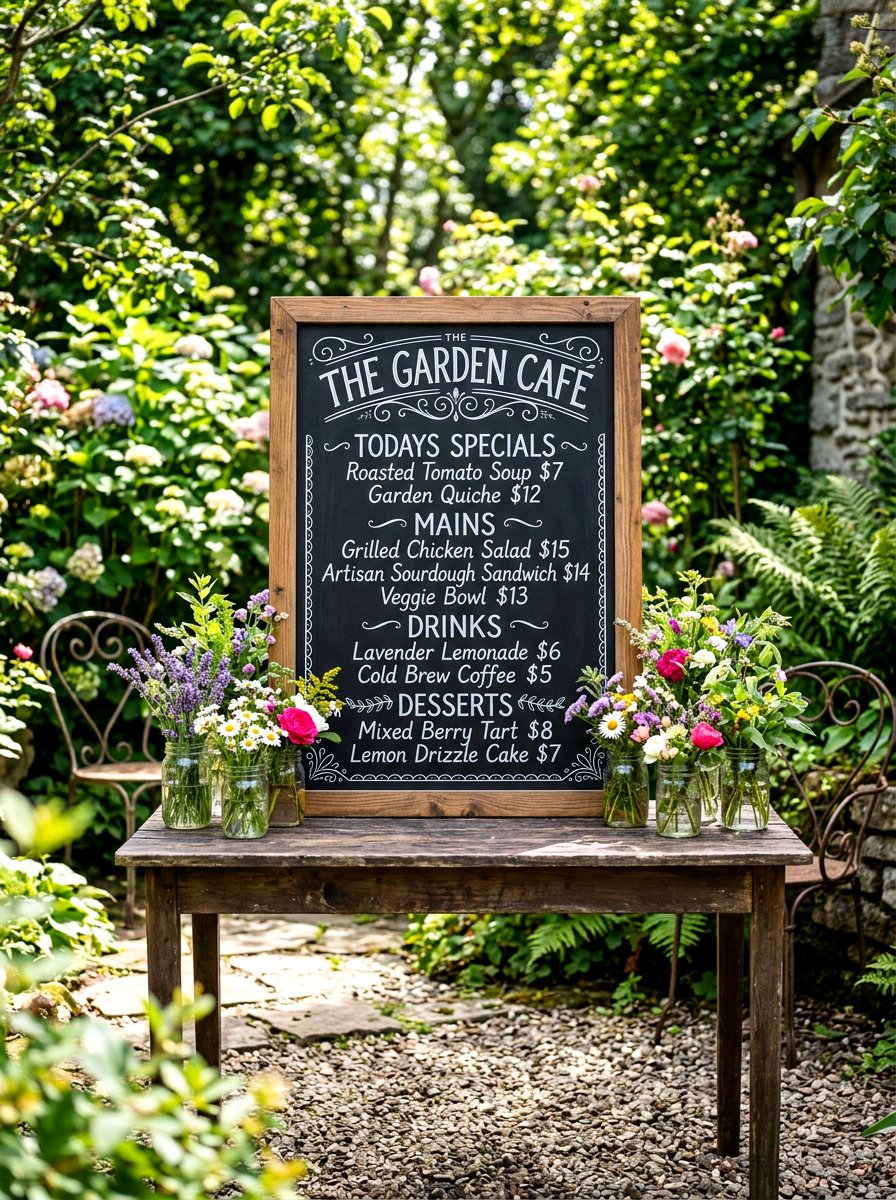 THE
THE GARDEN CAFÉ
TODAYS SPECIALS
Roasted Tomato Soup $7
Garden Quiche $12
MAINS
Grilled Chicken Salad $15
Artisan Sourdough Sandwich $14
Veggie Bowl $13
DRINKS
Lavender Lemonade $6
Cold Brew Coffee $5
DESSERTS
Mixed Berry Tart $8
Lemon Drizzle Cake $7